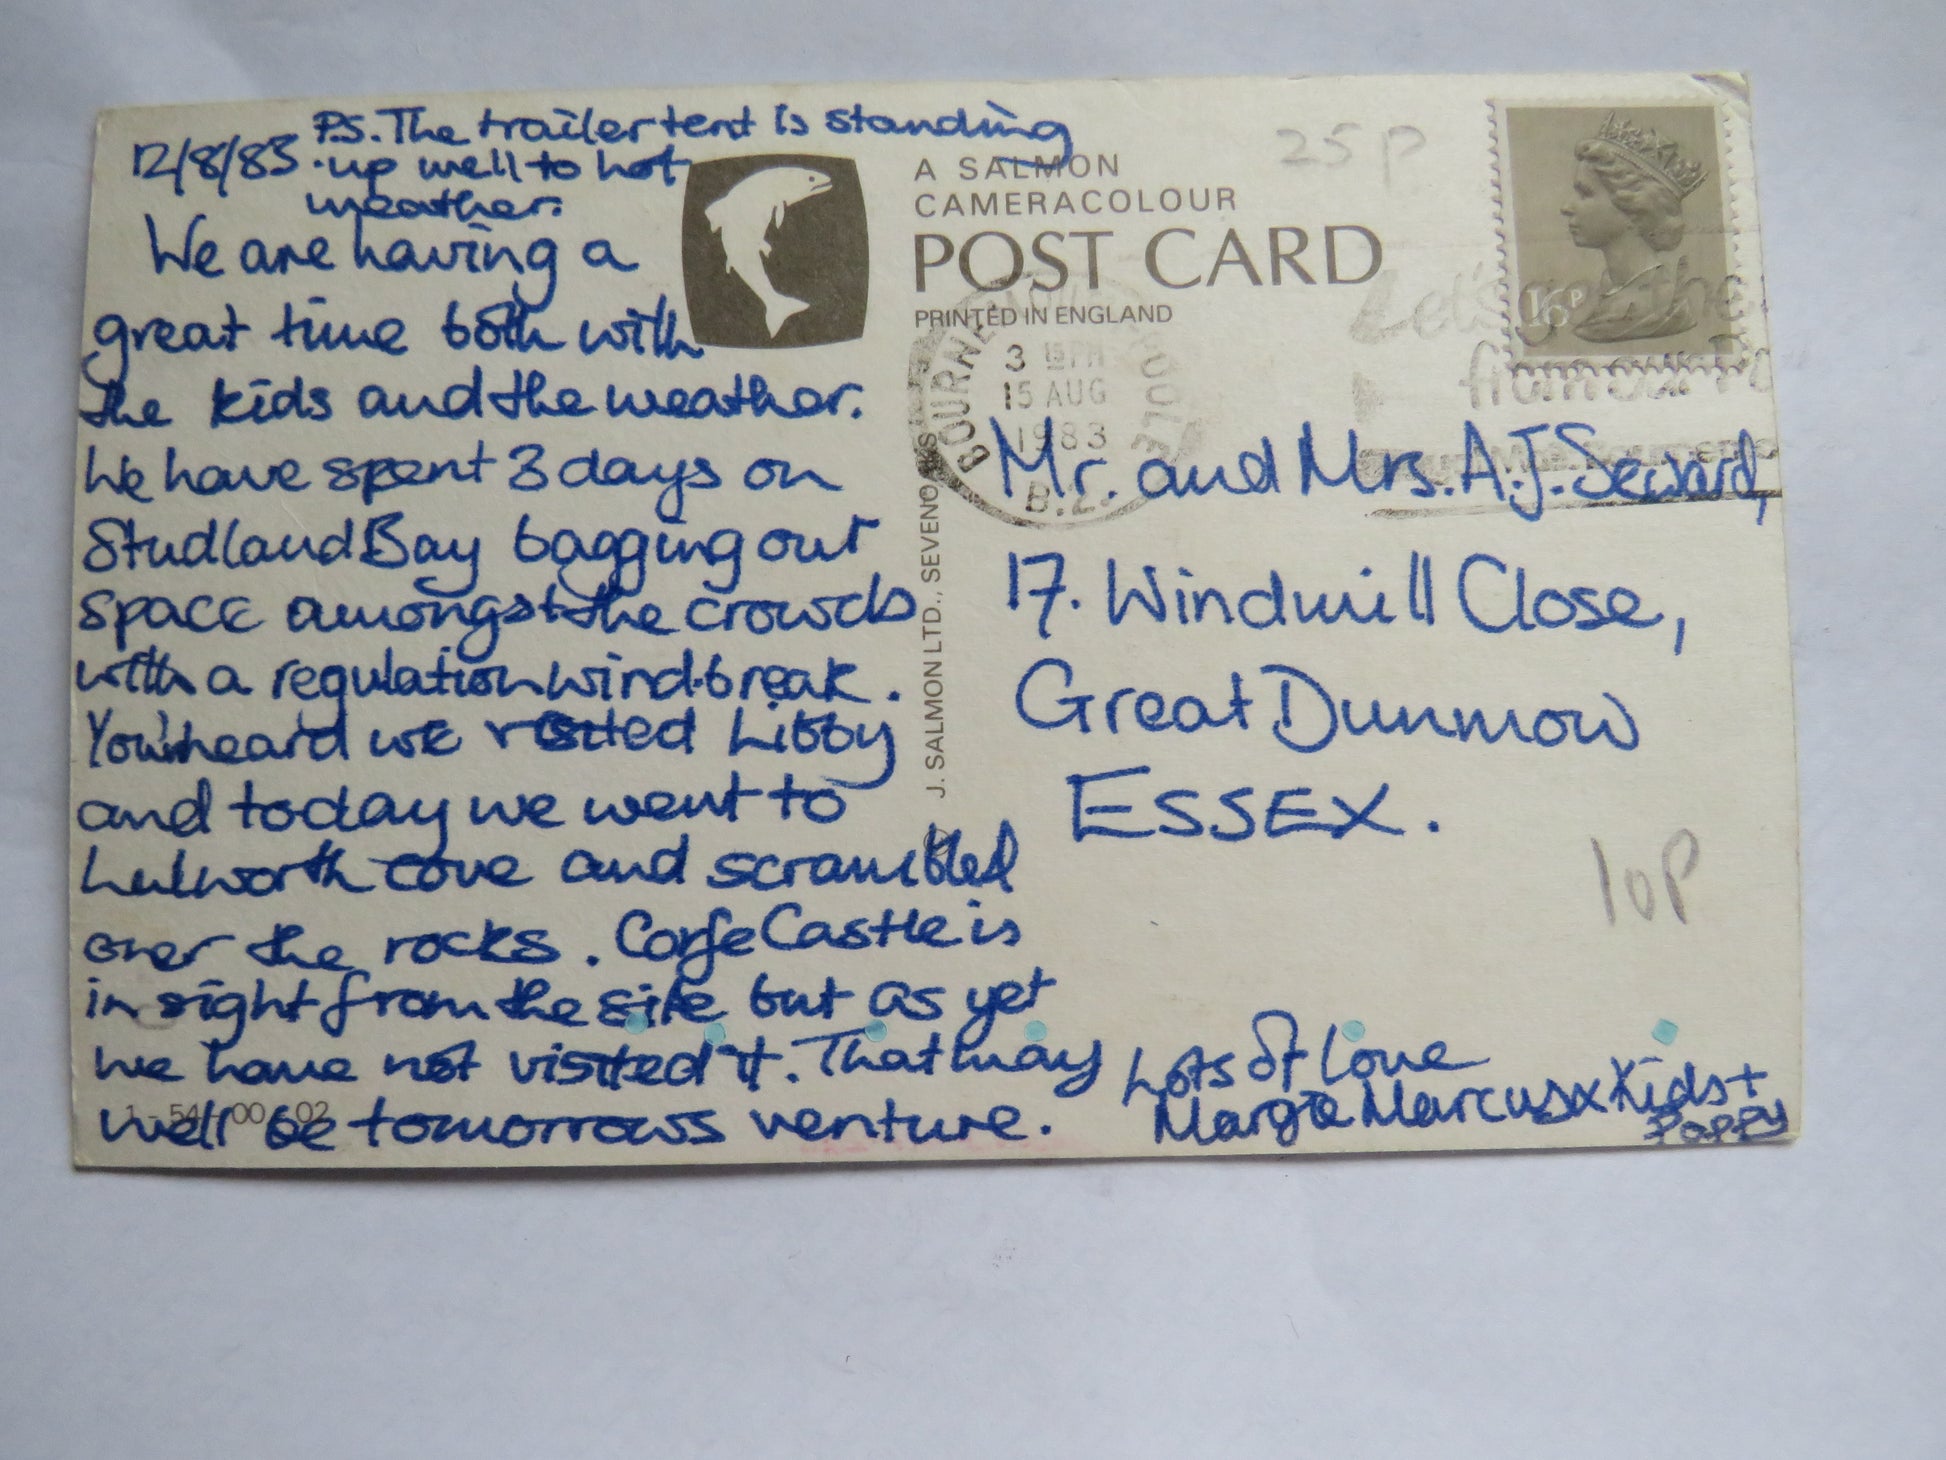 12/8/83
P.S. The trailer tent is standing
up well to hot
weather.
We are having a
great time both with
the kids and the weather.
We have spent 3 days on
Studland Bay bagging out
space amongst the crowds
with a regulation wind-break.
heard we visited Libby
and today we went to
Lulworth cove and scrambled
over the rocks. Corfe Castle is
in sight from the site but as yet
we have not visited it. That may
well be tomorrows venture.
Lots of love
Margie Marcus x Kids +
Poppy
A SALMON
CAMERACOLOUR
POST CARD
PRINTED IN ENGLAND
J. SALMON LTD., SEVENOAKS
25P
16P
BOURNEMOUTH POOLE
3 15PM
15 AUG
1983
Let's the
from our
Mr. and Mrs. A.J. Seward,
17. Windmill Close,
Great Dunmow
ESSEX.
10P
1-54-00-02